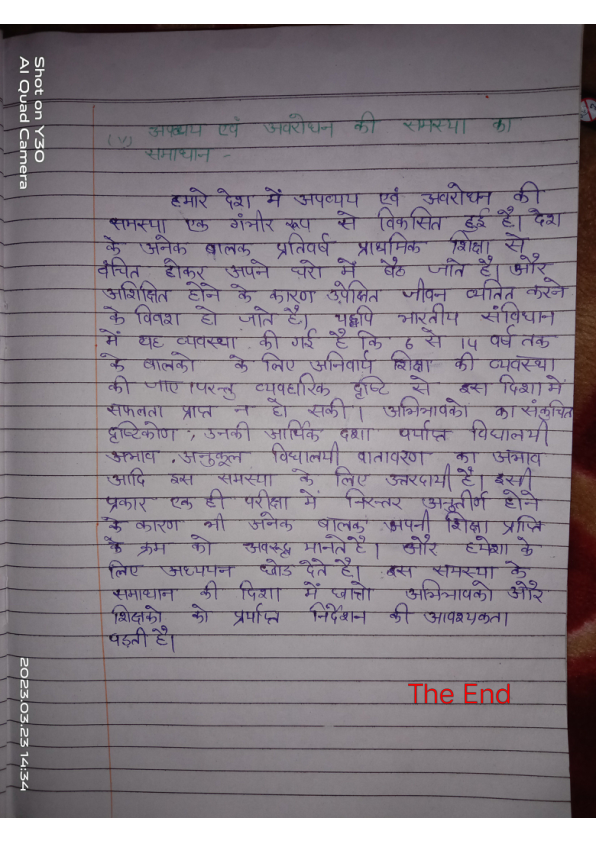 Shot on Y30
AI Quad Camera
(v) अपव्यय एवं अवरोधन की समस्या का
समाधान -
हमारे देश में अपव्यय एवं अवरोधन की
समस्या एक गंभीर रूप से विकसित हुई है। देश
के अनेक बालक प्रतिवर्ष प्राथमिक शिक्षा से
वंचित होकर अपने घरो में बैठ जाते है। और
अशिक्षित होने के कारण उपेक्षित जीवन व्यतित करने
के विवश हो जाते है। यद्धपि भारतीय संविधान
में यह व्यवस्था की गई है कि 6 से 14 वर्ष तक
के बालको के लिए अनिवार्य शिक्षा की व्यवस्था
की जाए। परन्तु व्यवहारिक दृष्टि से इस दिशा में
सफलता प्राप्त न हो सकी। अभिभावको का संकुचित
दृष्टिकोण, उनकी आर्थिक दशा पर्याप्त विद्यालयी
अभाव, अनुकूल विद्यालयी वातावरण का अभाव
आदि इस समस्या के लिए उत्तरदायी है। इसी
प्रकार एक ही परीक्षा में निरन्तर अनुतीर्ण होने
के कारण भी अनेक बालक अपनी शिक्षा प्राप्ति
के क्रम को अवरूद्ध मानते है। और हमेशा के
लिए अध्ययन छोड देते है। इस समस्या के
समाधान की दिशा में छात्रो अभिभावको और
शिक्षको को प्रर्याप्त निर्देशन की आवश्यकता
पड़ती है।
The End
2023.03.23 14:34